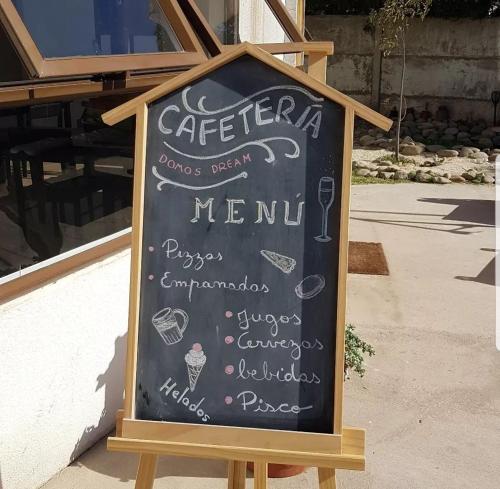 CAFETERÍA
DOMOS DREAM
MENÚ
• Pizzas
• Empanadas
• Jugos
• Cervezas
• bebidas
• Pisco
Helados